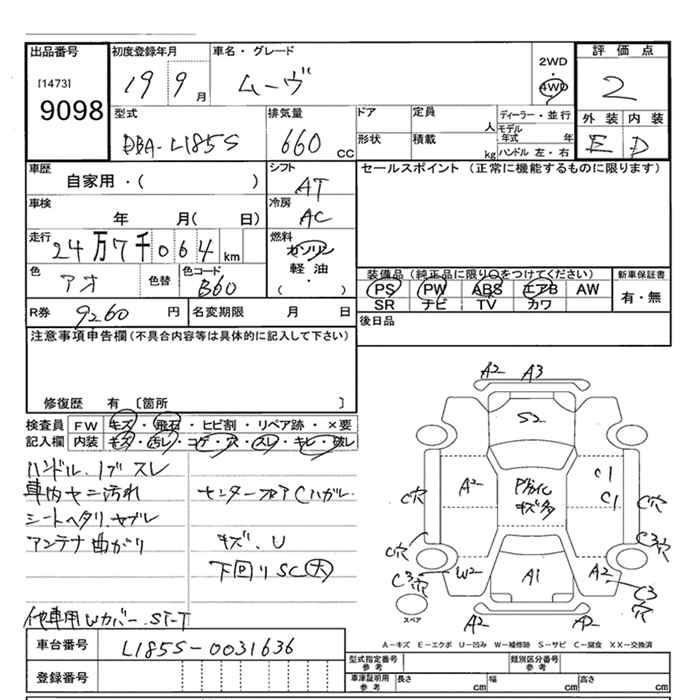 出品番号 初度登録年月 車名・グレード 2WD 評価点
[1473] 19 9月 ムーヴ ・ 4WD 2
9098 型式 排気量 ドア 定員 人 ディーラー・並行 外装 内装
DBA-L185S 660 CC 形状 積載 kg モデル年式 年 ハンドル 左・右 E D
車歴 シフト セールスポイント (正常に機能するものに限ります)
自家用・( ) AT
車検 冷房
年 月( 日) AC
走行 燃料
24万7千064km ガソリン
色 アオ 色替 色コード B60 軽油 ( ・ ) 装備品(純正品に限り○をつけてください) 新車保証書
PS PW ABS エアB AW 有・無
SR ナビ TV カワ
R券 9260 円 名変期限 月 日 後日品
注意事項申告欄(不具合内容等は具体的に記入して下さい)
修復歴 有 〔箇所 〕
検査員 FW キズ・飛石・ヒビ割・リペア跡・×要
記入欄 内装 キズ・汚レ・コゲ・穴・スレ・キレ・破レ
ハンドル.ノブ スレ
車内ヤニ汚れ センターフロアCハガレ
シートヘタリ.ヤブレ
アンテナ曲がり キズ、U
下回りSC(大)
他車用Wカバー ST-T
A2 A3
S2
A2 C1
C1
キズ多
C穴 C穴
C穴 C3穴
W2 A1 A2
C3穴 C3穴
スペア A2 A2
A-キズ E-エクボ U-凹み W-補修跡 S-サビ C-腐食 XX-交換済
車台番号 L185S-0031636
型式指定番号 参考 類別区分番号 参考
登録番号 車庫証明用 参考 長さ cm 幅 cm 高さ cm